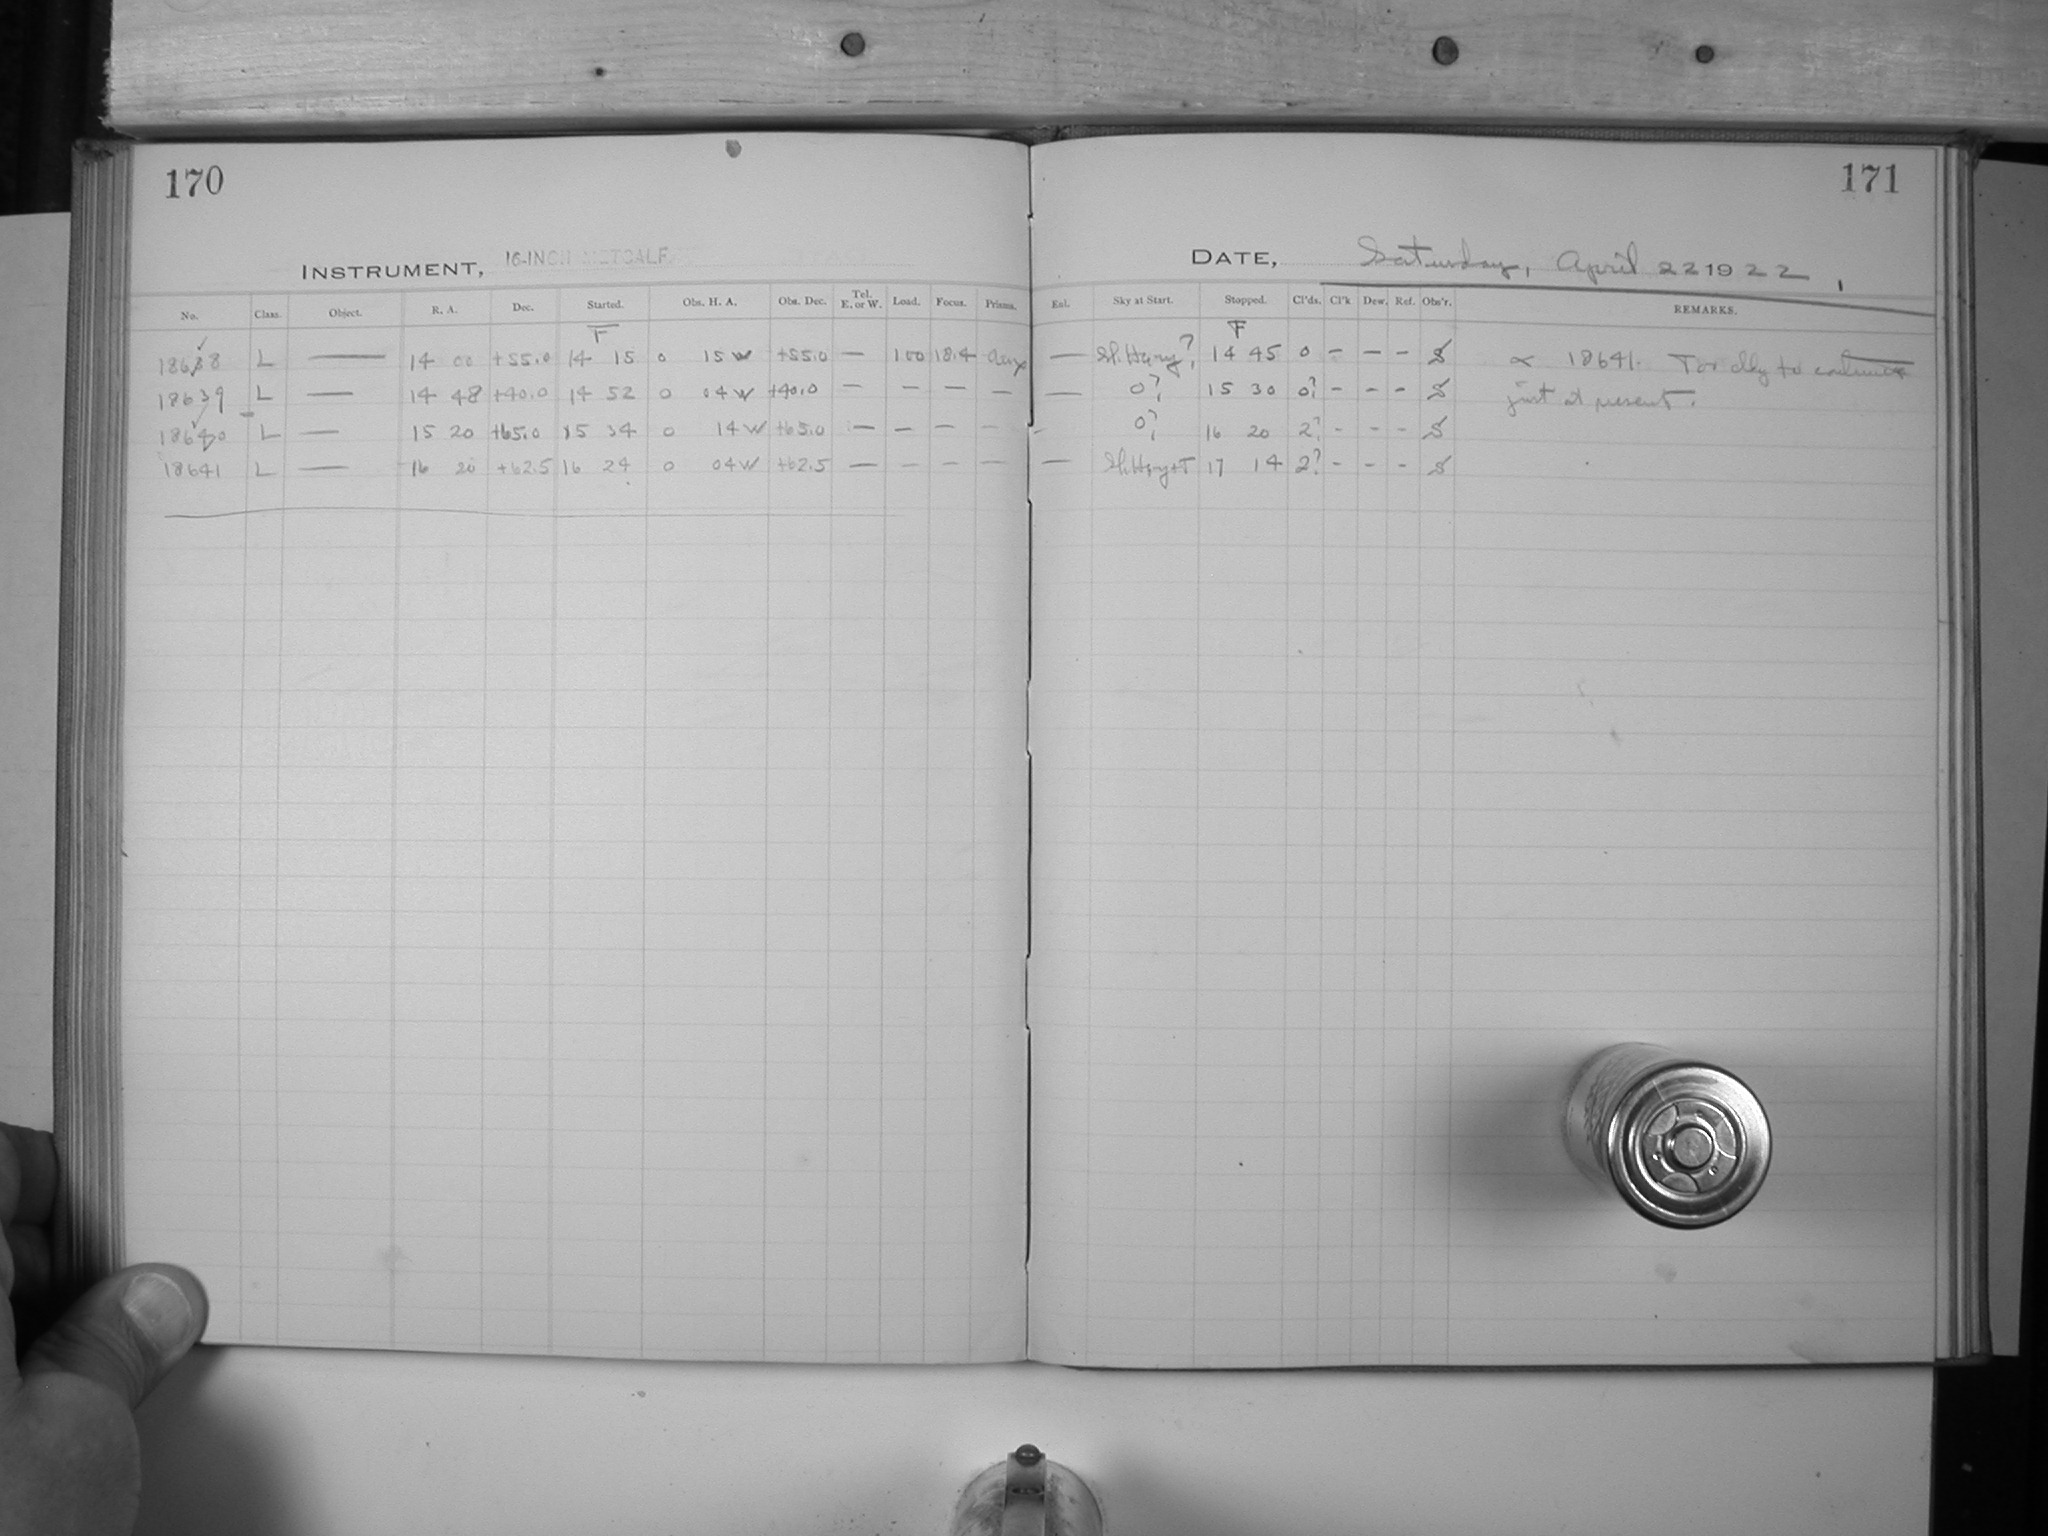 170
171
INSTRUMENT, 16-INCH METCALF
DATE, Saturday, April 22 1922,
No. Class. Object. R. A. Dec. Started. Obs. H. A. Obs. Dec. Tel. E. or W. Load. Focus. Prisms. Enl. Sky at Start. Stopped. Cl'ds. Cl'k Dew. Ref. Obs'r. REMARKS.
F F
18638 L — 14 00 +55.0 14 15 0 15 W +55.0 — 100 18.4 — Sl. Hazy? 14 45 0 – – – S ∝ 18641. Too dky to continue
18639 L — 14 48 +40.0 14 52 0 04 W +40.0 — — — — — 0? 15 30 0? – – – S just at present.
18640 L — 15 20 +65.0 15 34 0 14 W +65.0 — — — — - 0? 16 20 2? – – – S
18641 L — 16 20 +62.5 16 24 0 04 W +62.5 — — — — — Sl. Hzy+T 17 14 2? – – – S